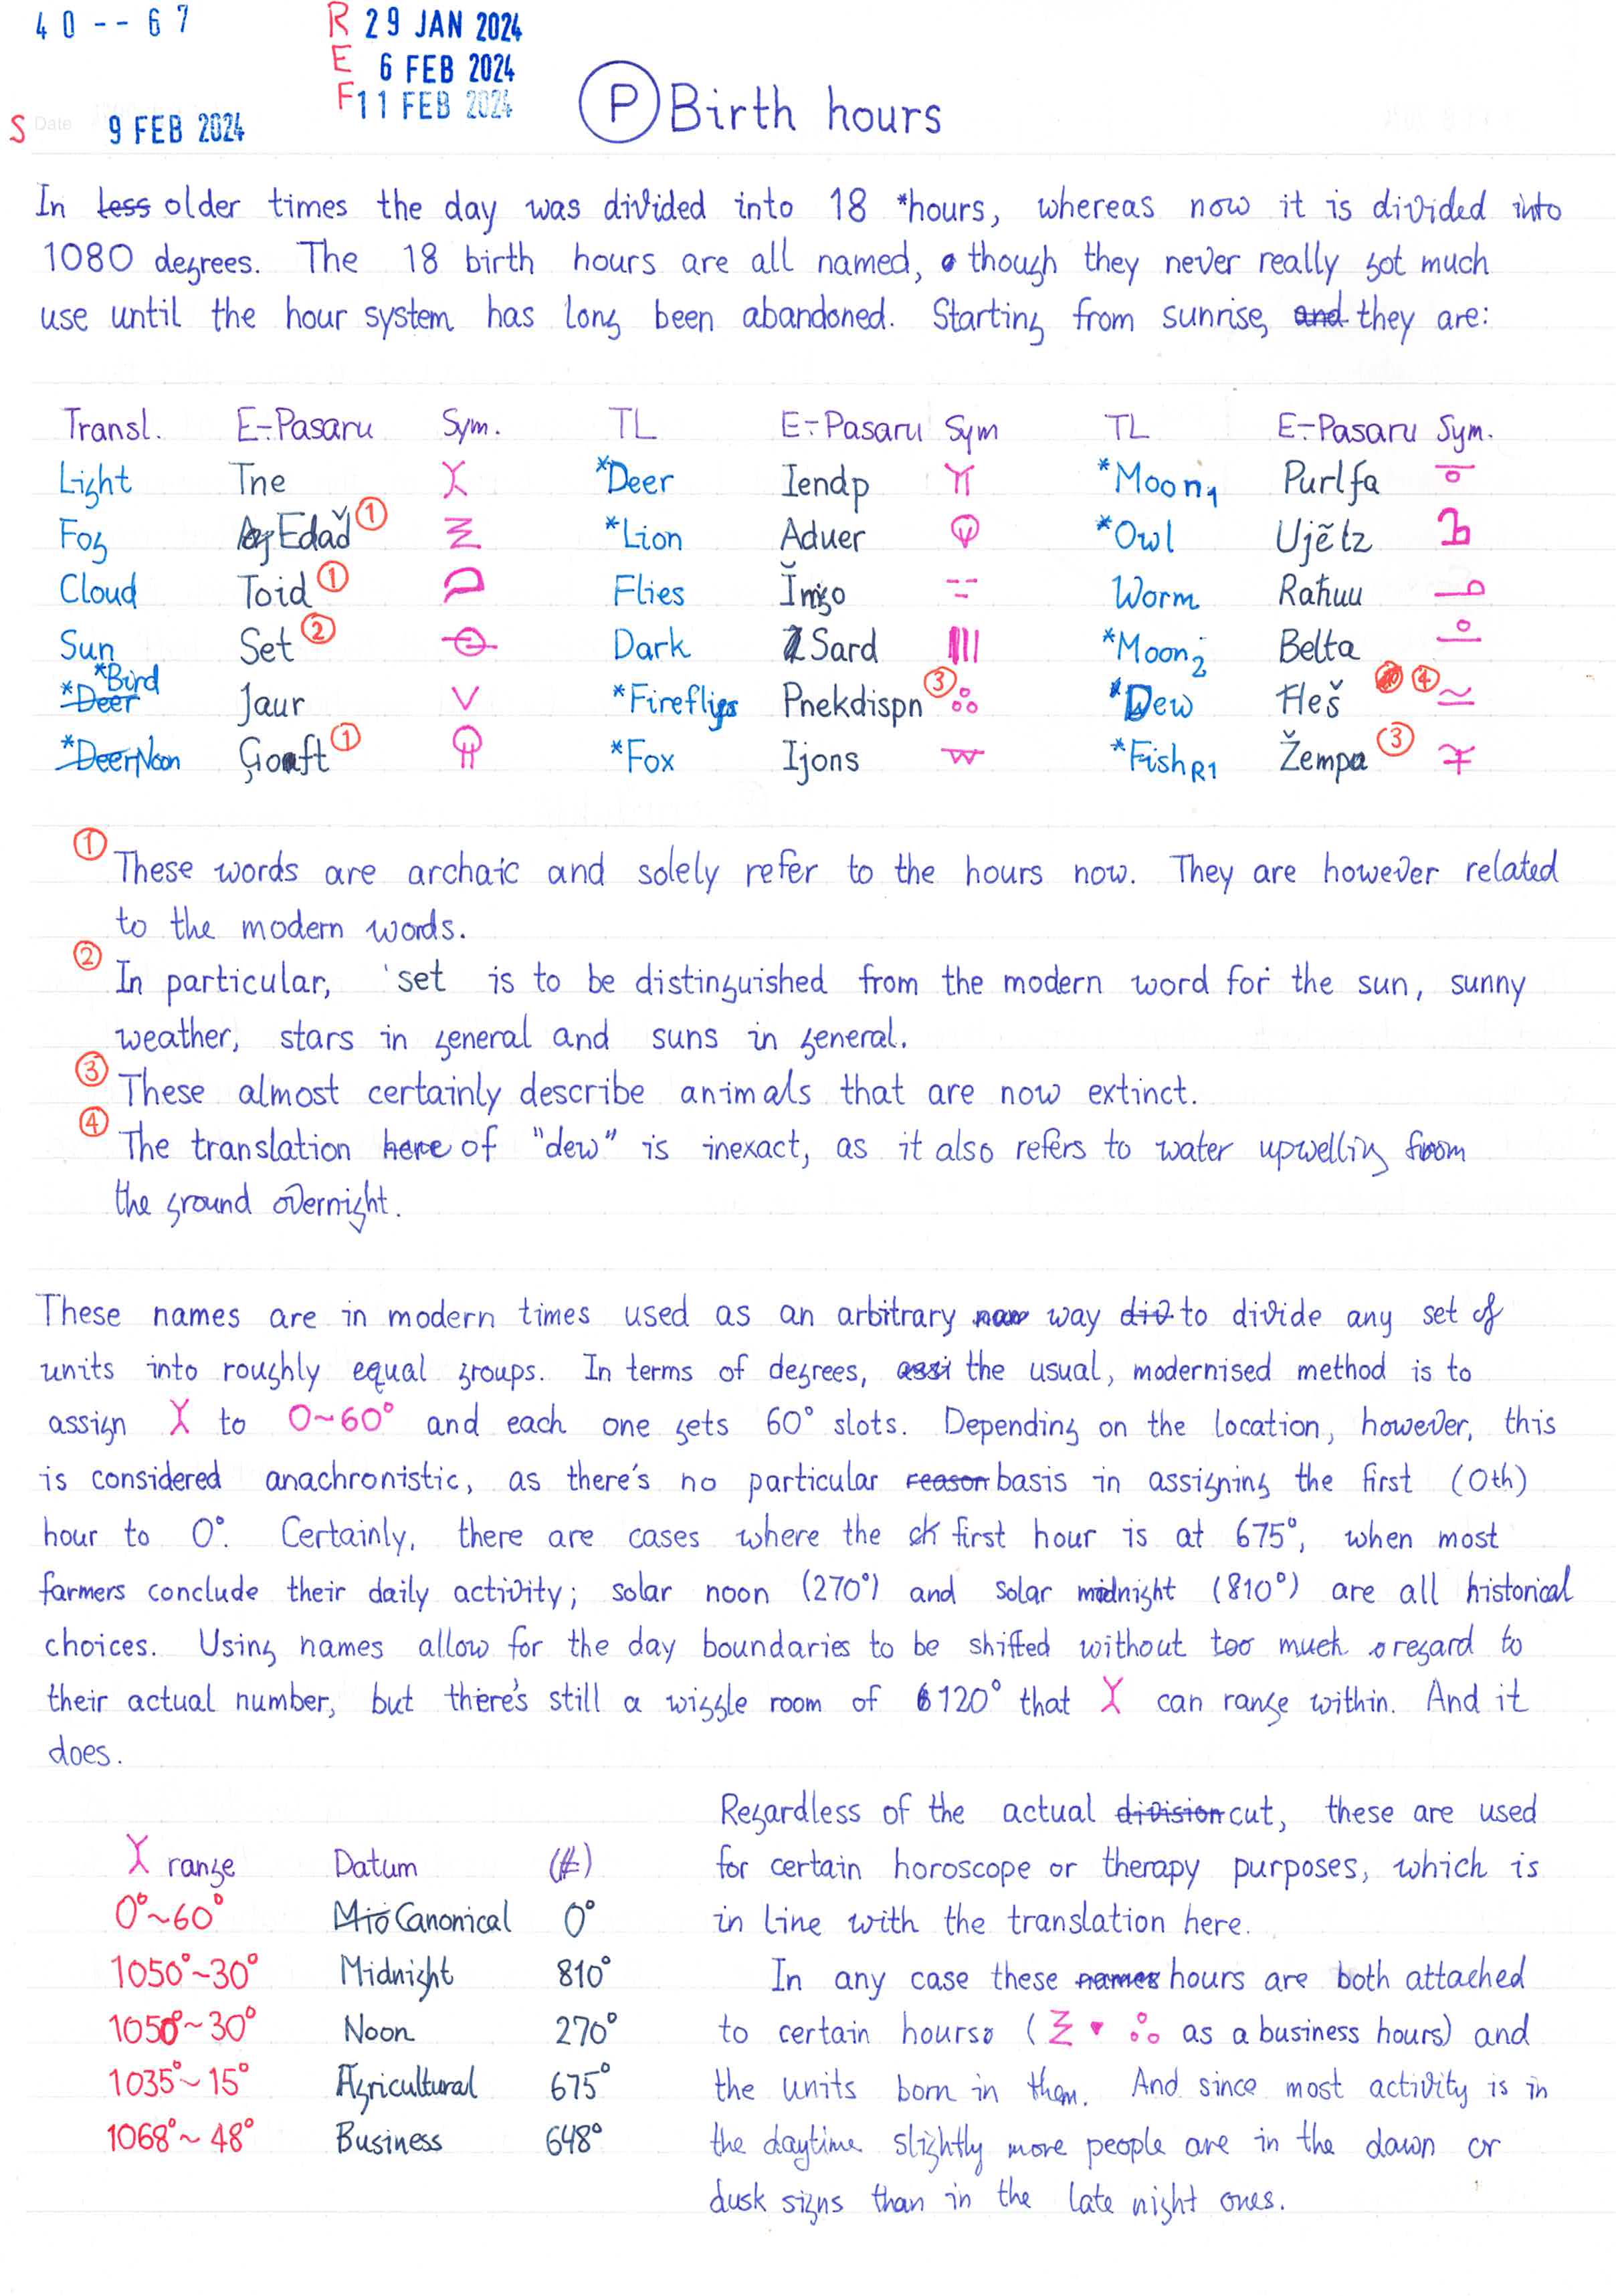 40--67
R 29 JAN 2024
E 6 FEB 2024
F 11 FEB 2024
S Date 9 FEB 2024
Ⓟ Birth hours
In less older times the day was divided into 18 *hours, whereas now it is divided into
1080 degrees. The 18 birth hours are all named, though they never really got much
use until the hour system has long been abandoned. Starting from sunrise, and they are:
Transl. E-Pasaru Sym. TL E-Pasaru Sym TL E-Pasaru Sym.
Light Tne *Deer Iendp *Moon1 Purlfa
Fog Edaď ① *Lion Aduer *Owl Ujětz
Cloud Toid ① Flies Ĭngo Worm Raħuu
Sun Set ② Dark Sard *Moon2 Belta
*Deer *Bird Jaur *Fireflies Pnekdispn ③ *Dew Ħeš ④
*Deer Noon Goaft ① *Fox Ijons *Fish R1 Žempa ③
① These words are archaic and solely refer to the hours now. They are however related
to the modern words.
② In particular, 'set is to be distinguished from the modern word for the sun, sunny
weather, stars in general and suns in general.
③ These almost certainly describe animals that are now extinct.
④ The translation here of "dew" is inexact, as it also refers to water upwelling from
the ground overnight.
These names are in modern times used as an arbitrary nam way div to divide any set of
units into roughly equal groups. In terms of degrees, assi the usual, modernised method is to
assign to 0~60° and each one gets 60° slots. Depending on the location, however, this
is considered anachronistic, as there's no particular reason basis in assigning the first (0th)
hour to 0°. Certainly, there are cases where the first hour is at 675°, when most
farmers conclude their daily activity; solar noon (270°) and solar midnight (810°) are all historical
choices. Using names allow for the day boundaries to be shifted without too much regard to
their actual number, but there's still a wiggle room of 120° that can range within. And it
does.
range Datum (#)
0°~60° Mid Canonical 0°
1050°~30° Midnight 810°
1050°~30° Noon 270°
1035°~15° Agricultural 675°
1068°~48° Business 648°
Regardless of the actual division cut, these are used
for certain horoscope or therapy purposes, which is
in line with the translation here.
In any case these names hours are both attached
to certain hours ( as a business hours) and
the units born in them. And since most activity is in
the daytime slightly more people are in the dawn or
dusk signs than in the late night ones.